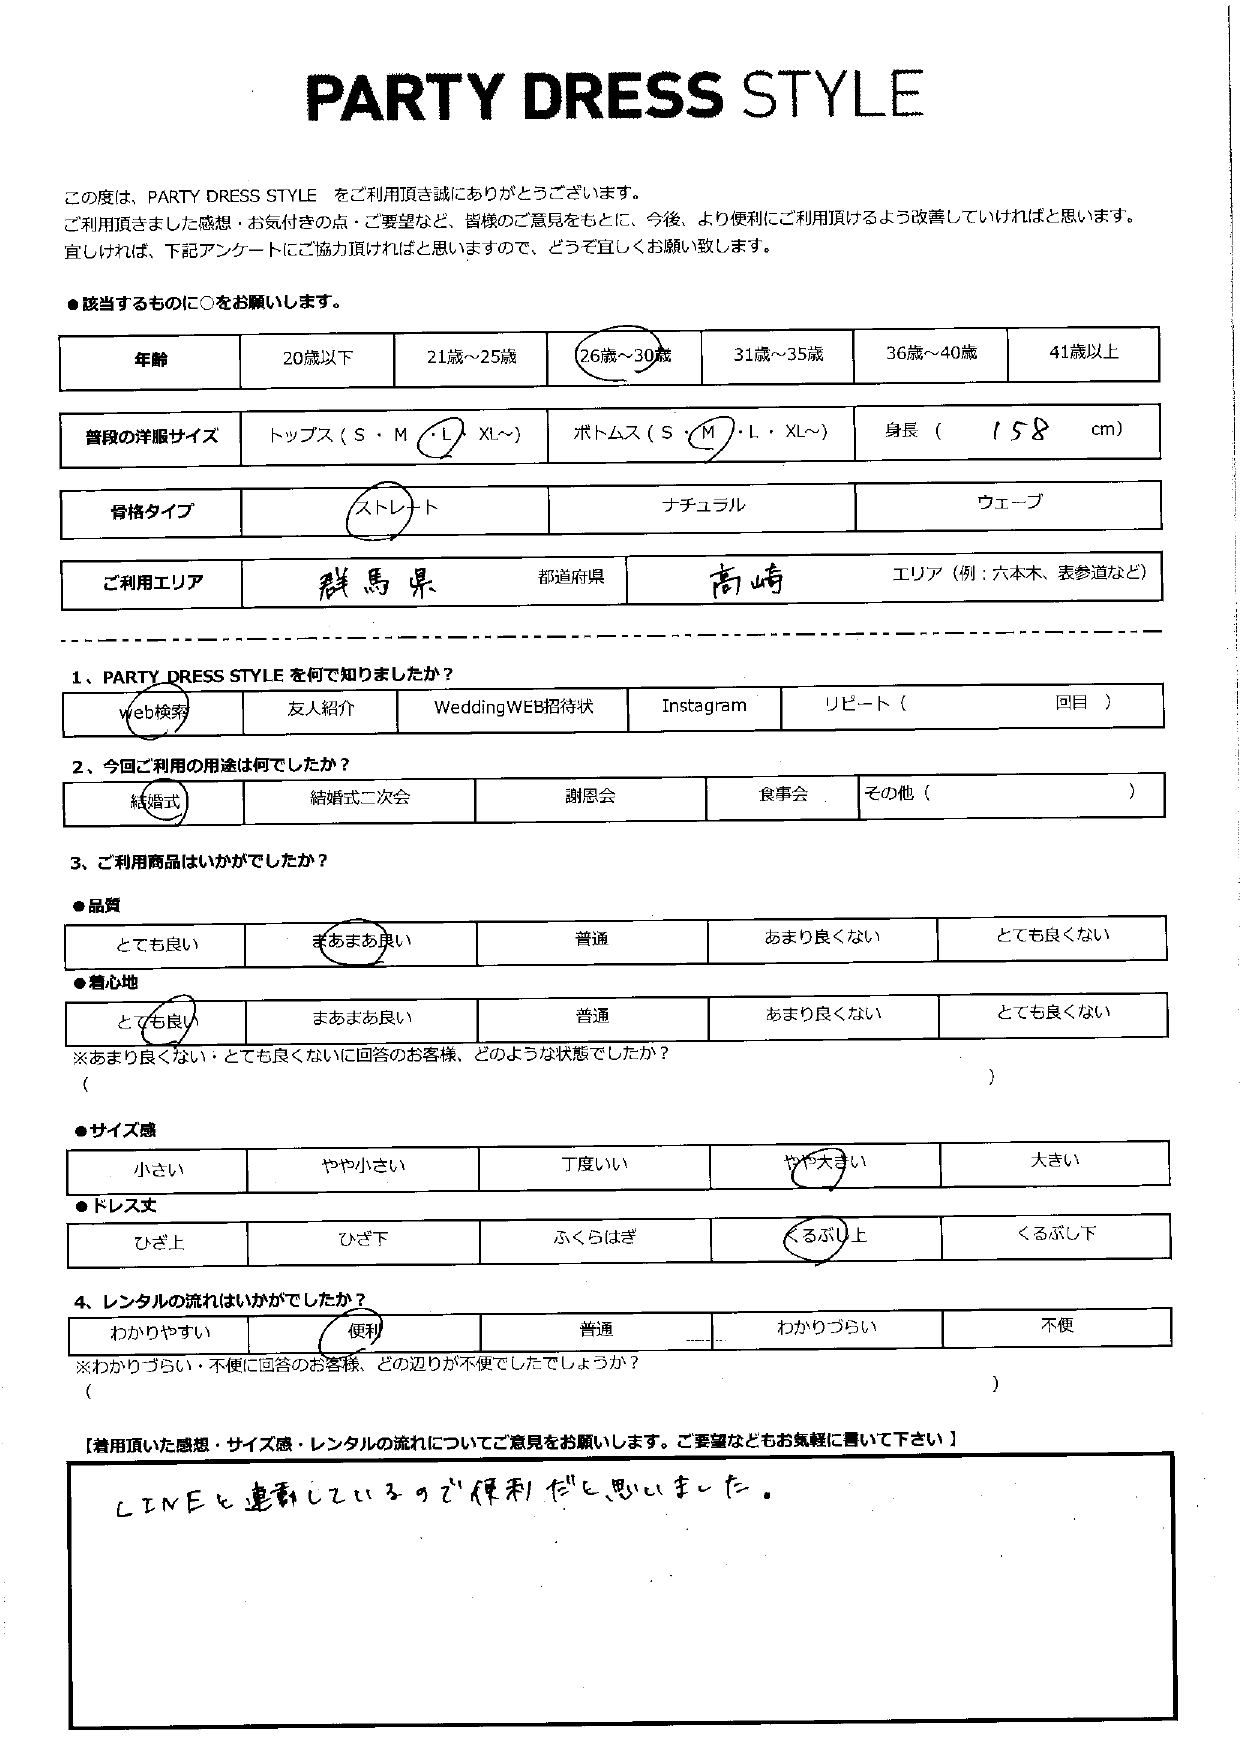 PARTY DRESS STYLE
この度は、PARTY DRESS STYLE をご利用頂き誠にありがとうございます。
ご利用頂きました感想・お気付きの点・ご要望など、皆様のご意見をもとに、今後、より便利にご利用頂けるよう改善していければと思います。
宜しければ、下記アンケートにご協力頂ければと思いますので、どうぞ宜しくお願い致します。
●該当するものに○をお願いします。
年齢 20歳以下 21歳～25歳 26歳～30歳 31歳～35歳 36歳～40歳 41歳以上
普段の洋服サイズ トップス（S ・ M ・L・ XL～） ボトムス（S ・M・L ・ XL～） 身長 （ 158 cm）
骨格タイプ ストレート ナチュラル ウェーブ
ご利用エリア 群馬県 都道府県 高崎 エリア（例：六本木、表参道など）
1、PARTY DRESS STYLE を何で知りましたか？
web検索 友人紹介 WeddingWEB招待状 Instagram リピート（ 回目 ）
2、今回ご利用の用途は何でしたか？
結婚式 結婚式二次会 謝恩会 食事会 その他（ ）
3、ご利用商品はいかがでしたか？
●品質
とても良い まあまあ良い 普通 あまり良くない とても良くない
●着心地
とても良い まあまあ良い 普通 あまり良くない とても良くない
※あまり良くない・とても良くないに回答のお客様、どのような状態でしたか？
（ ）
●サイズ感
小さい やや小さい 丁度いい やや大きい 大きい
●ドレス丈
ひざ上 ひざ下 ふくらはぎ くるぶし上 くるぶし下
4、レンタルの流れはいかがでしたか？
わかりやすい 便利 普通 わかりづらい 不便
※わかりづらい・不便に回答のお客様、どの辺りが不便でしたでしょうか？
（ ）
【着用頂いた感想・サイズ感・レンタルの流れについてご意見をお願いします。ご要望などもお気軽に書いて下さい】
LINEと連動しているので便利だと思いました。